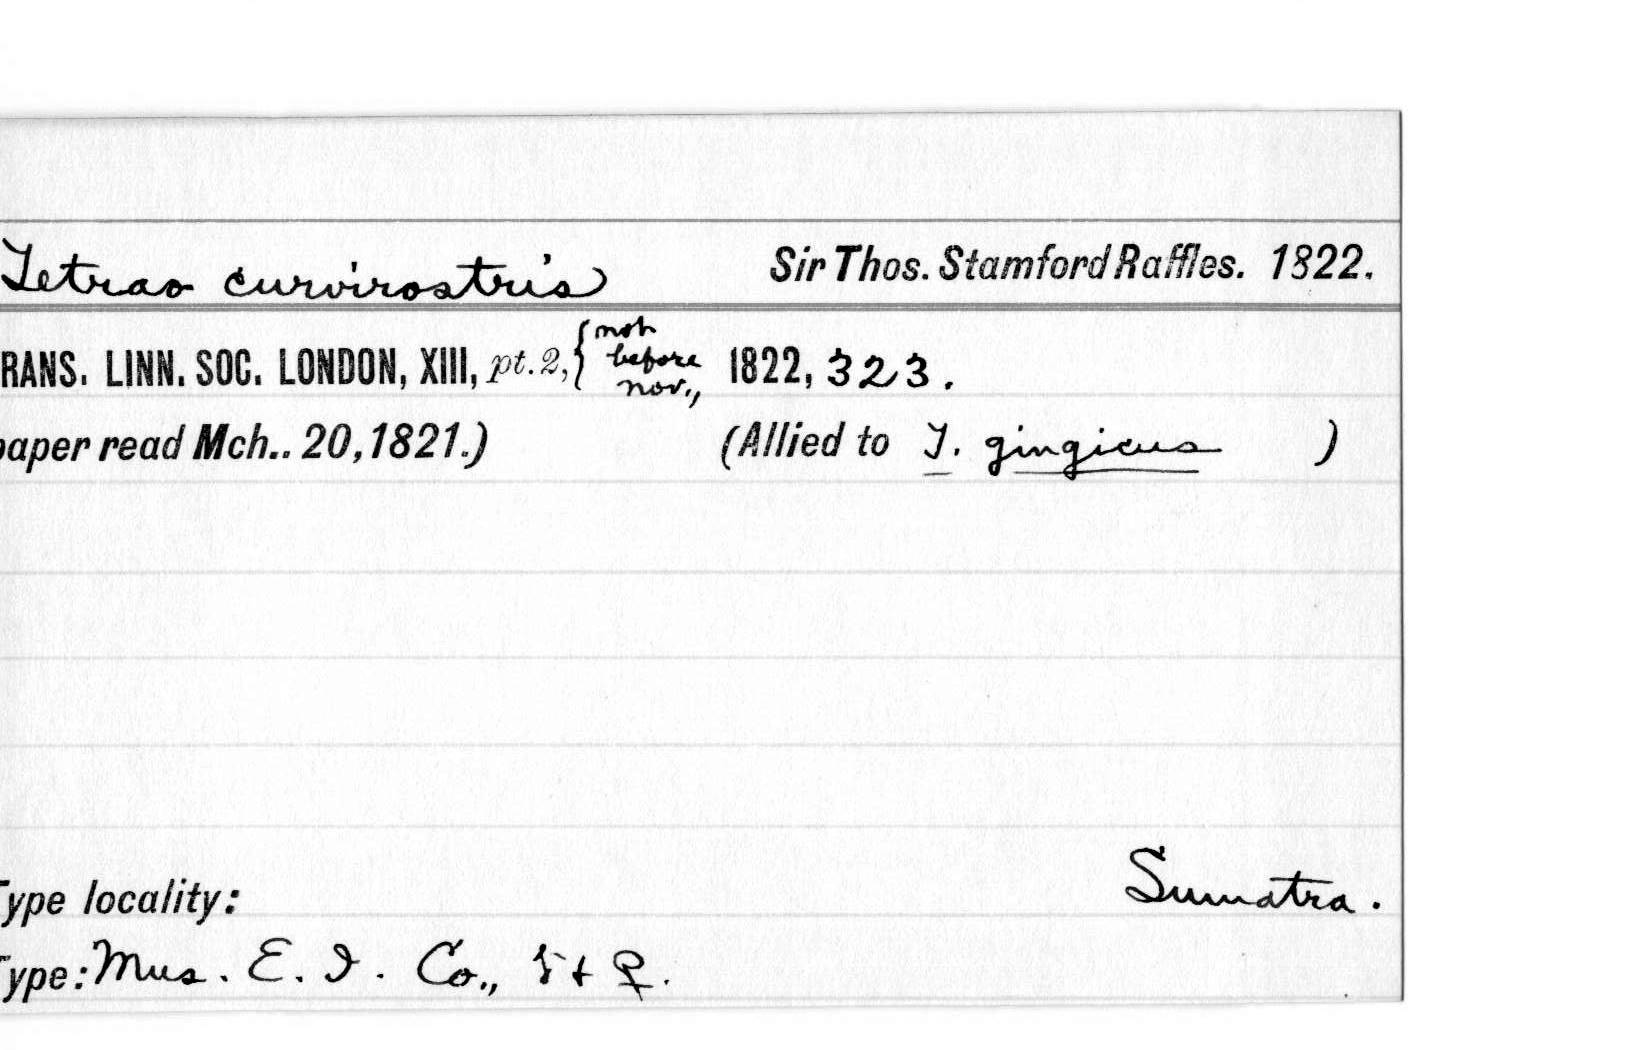 Tetrao curvirostris Sir Thos. Stamford Raffles. 1822.
RANS. LINN. SOC. LONDON, XIII, pt. 2, { not before Nov., 1822, 323.
paper read Mch.. 20, 1821.) (Allied to T. gingicus )
Type locality: Sumatra.
Type: Mus. E. I. Co., ♂ + ♀.